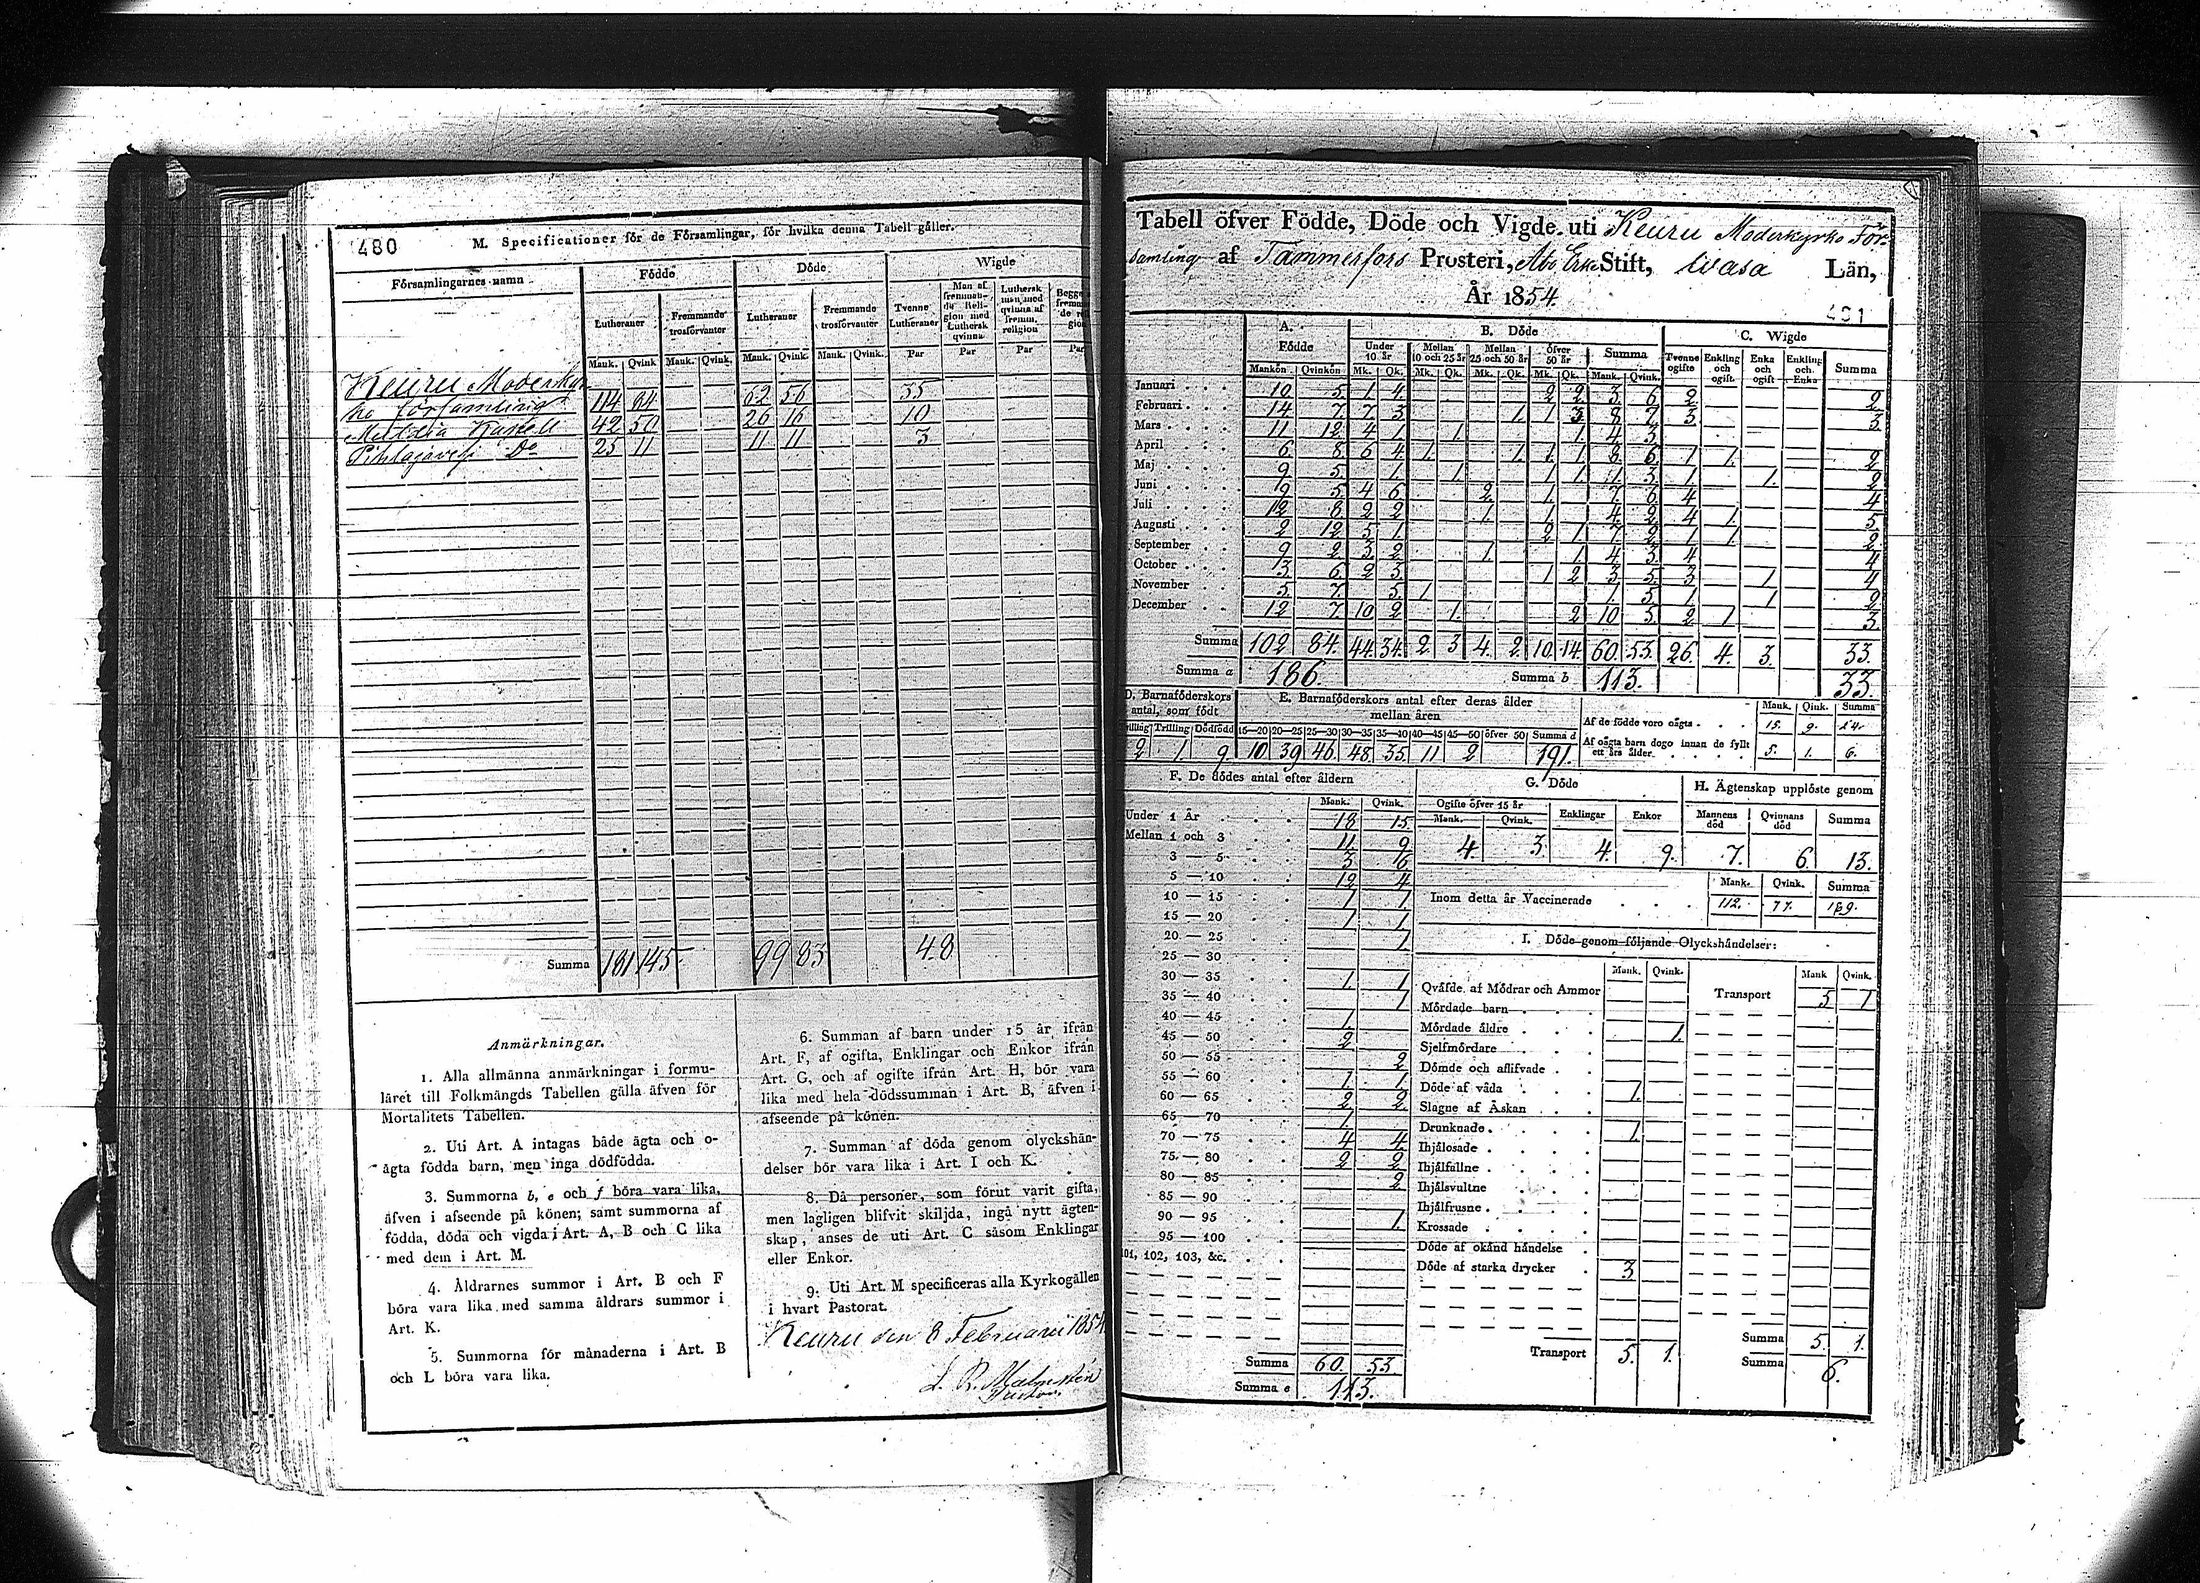 480
M. Specificationer för de Församlingar, för hvilka denna Tabell gäller.
Församlingarnes namn
Födde
Döde
Wigde
Lutheraner
Fremmande trosförvanter
Lutheraner
Fremmande trosförvanter
Tvenne Lutheraner
Man af fremman-de Reli-gion med Luthersk qvinna
Luthersk man med qvinna af fremm. religion
Mank. Qvink Mank. Qvink. Mank. Qvink. Mank. Qvink. Par Par Par Par
Keuru Moderkyr
ko församling 114 84 62 56 35
Multia Kapell 42 50 26 16 10
Pihlajavesi Do 25 11 11 11 3
Summa 181 145 99 83 48
Anmärkningar.
1. Alla allmänna anmärkningar i formu-
läret till Folkmängds Tabellen gälla äfven för
Mortalitets Tabellen.
2. Uti Art. A intagas både ägta och o-
ägta födda barn, men inga dödfödda.
3. Summorna b, e och f böra vara lika,
äfven i afseende på könen; samt summorna af
födda, döda och vigda i Art. A, B och C lika
med dem i Art. M.
4. Åldrarnes summor i Art. B och F
böra vara lika med samma åldrars summor i
Art. K.
5. Summorna för månaderna i Art. B
och L böra vara lika.
6. Summan af barn under 15 år ifrån
Art. F, af ogifta, Enklingar och Enkor ifrån
Art. G, och af ogifte ifrån Art. H, bör vara
lika med hela dödssumman i Art. B, äfven i
afseende på könen.
7. Summan af döda genom olyckshän-
delser bör vara lika i Art. I och K.
8. Då personer, som förut varit gifta,
men lagligen blifvit skiljda, ingå nytt ägten-
skap, anses de uti Art. C såsom Enklingar
eller Enkor.
9. Uti Art. M specificeras alla Kyrkogällen
i hvart Pastorat.
Keuru den 8 Februarii 185
Tabell öfver Födde, Döde och Vigde uti Keuru Moderkyrko För
samling af Tammerfors Prosteri, Åbo Erke Stift, Wasa Län,
År 1854.
A. Födde
B. Döde
C. Wigde
Under 10 år
Mellan 10 och 25 år
Mellan 25 och 50 år
öfver 50 år
Summa
Tvenne ogifte
Enkling och ogift.
Enka och ogift
Enkling och Enka
Summa
Mankön Qvinkön Mk. Qk. Mk. Qk. Mk. Qk. Mk. Qk. Mank. Qvink.
Januari 10 5 1 4 2 2 3 6 2 2
Februari 14 7 7 3 1 1 3 8 7 3 3
Mars 11 12 4 1 1 1 4 3
April 6 8 6 4 1 1 1 1 8 6 1 1 2
Maj 9 5 1 1 1 1 1 3 1 1 2
Juni 9 5 4 6 2 1 7 6 4 4
Juli 12 8 2 2 1 1 4 2 4 1 5
Augusti 2 12 5 1 2 1 7 2 1 1 2
September 9 2 3 2 1 1 4 3 4 4
October 13 6 2 3 1 2 3 5 3 1 4
November 5 7 5 1 1 5 1 1 2
December 12 7 10 2 1 2 10 5 2 1 3
Summa 102 84 44 34 2 3 4 2 10 14 60 53 26 4 3 33
Summa a 186. Summa b 113. 33
D. Barnaföderskors antal, som födt
E. Barnaföderskors antal efter deras ålder mellan åren
Trilling Dödfödd 15—20 20—25 25—30 30—35 35—40 40—45 45—50 öfver 50 Summa d
2 1 9 10 39 46 48 35 11 2 191.
Mank. Qink. Summa
Af de födde voro oägta 15. 9. 24.
Af oägta barn dogo innan de fyllt ett års ålder 5. 1. 6.
F. De dödes antal efter åldern
Mank. Qvink.
Under 1 År 18 15
Mellan 1 och 3 11 9
3 — 5 3 6
5 — 10 12 4
10 — 15 1 1
15 — 20 1 1
20 — 25 1
25 — 30
30 — 35 1 1
35 — 40 1
40 — 45 1
45 — 50 2
50 — 55 2
55 — 60 1 1
60 — 65 2 2
65 — 70 1
70 — 75 4 4
75 — 80 2 2
80 — 85 2
85 — 90
90 — 95 1
95 — 100
101, 102, 103, &c.
Summa 60. 53
Summa e 113.
G. Döde
Ogifte öfver 15 år
Mank. Qvink. Enklingar Enkor
4. 3. 4. 9.
H. Ägtenskap upplöste genom
Mannens död Qvinnans död Summa
7. 6. 13.
Mank. Qvink. Summa
Inom detta år Vaccinerade 112. 77. 189.
I. Döde genom följande Olyckshändelser:
Mank. Qvink. Mank Qvink.
Qväfde af Mödrar och Ammor
Transport 5 1
Mördade barn
Mördade äldre 1.
Sjelfmördare
Dömde och aflifvade
Döde af våda 1.
Slagne af Åskan
Drunknade 1.
Ihjälosade
Ihjälfallne
Ihjälsvultne
Ihjälfrusne
Krossade
Döde af okänd händelse
Döde af starka drycker 3
Transport 5. 1.
Summa 5. 1.
Summa 6.